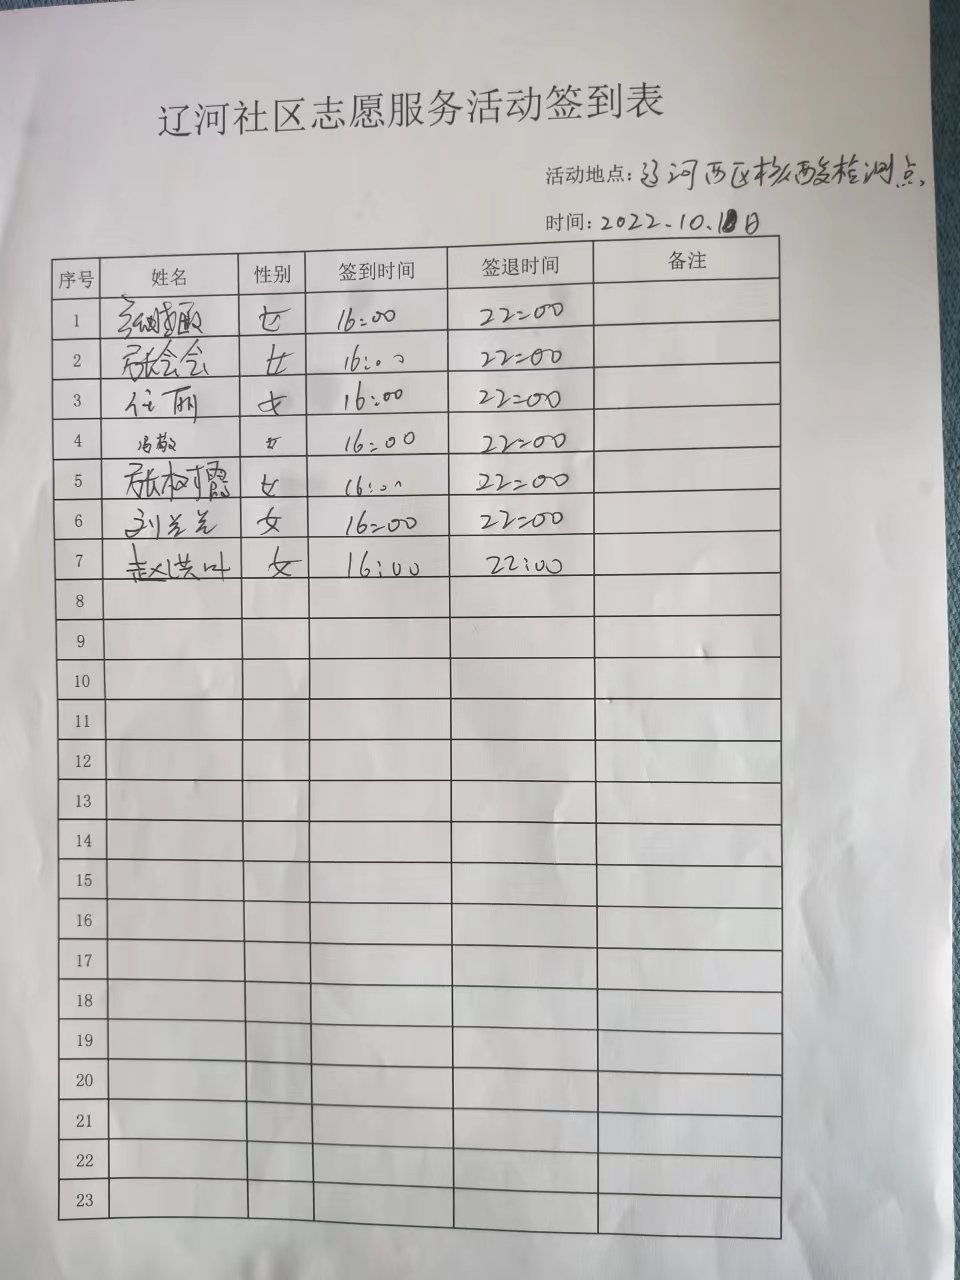 辽河社区志愿服务活动签到表
活动地点:辽河西区核酸检测点
时间:2022.10.18日
序号 姓名 性别 签到时间 签退时间 备注
1 女 16:00 22:00
2 张会会 女 16:00 22:00
3 任丽 女 16:00 22:00
4 冯敏 女 16:00 22:00
5 张树霞 女 16:00 22:00
6 刘兰兰 女 16:00 22:00
7 赵洪叶 女 16:00 22:00
8
9
10
11
12
13
14
15
16
17
18
19
20
21
22
23